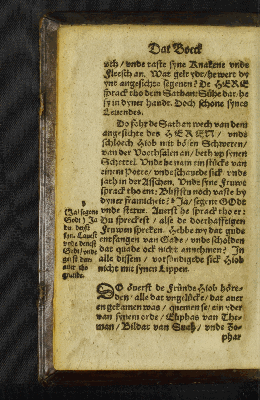 Dat Boeck
vth / vnde taste syne Knakene vnde
Fleesch an. Wat gelt ydt / he wert dy
ynt angesichte segenen? De HERE
sprack tho dem Sathan: Sühe dar / he
sy in dyner handt. Doch schone synes
Leuendes.
Do fohr de Sathan wech van dem
angesichte des HEREN / vnde
schloech Hiob mit bösen Schweren /
van der Voethsalen an / beth vp synen
Schettel. Vnde he nam ein stücke van
einem potte / vnde schauede sick / vnde
sath in der Asschen. Vnde syne Fruwe
sprack tho em: Blifstu noch vaste by
dyner framicheit? Ja / segen GODt
vnde sterue. Auerst he sprack tho er:
Du sprekest / alse de Dorhafftigen
Fruwen spreken. Hebbe wy dat gude
entfangen van Gade / vnde scholden
dat quade ock nicht annehmen? In
alle dissem / vorsündigede sick Hiob
nicht mit synen Lippen.
Gode /
DO överst de Fründe Hiob höre-
den / alle dat vngelücke / dat auer
en gekamen was / quemen se / ein yder
van synem orde / Eliphas van The-
man / Bildad van Suah / vnde Zo-
phar